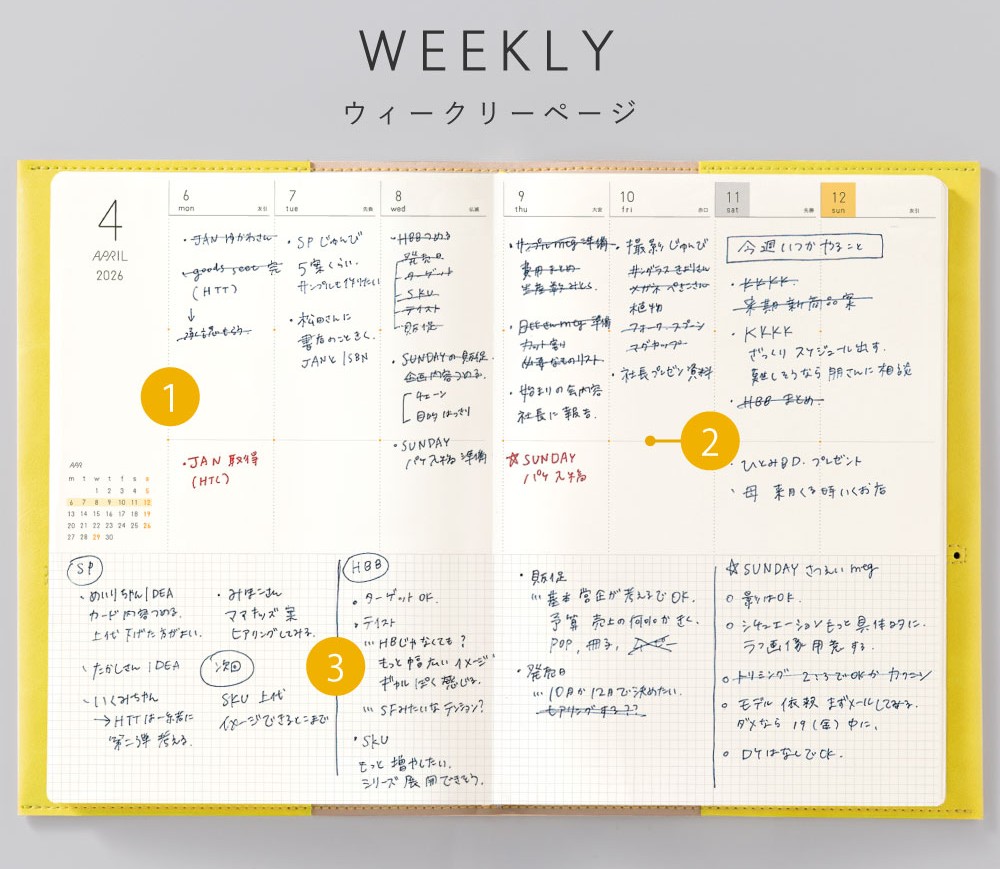 WEEKLY
ウィークリーページ
4
APRIL
2026
6
mon
友引
7
tue
先負
8
wed
仏滅
9
thu
大安
10
fri
赤口
11
sat
先勝
12
sun
友引
・JAN ゆかわさん
・goods seet 完
(HTT)
↓
・SPじゅんび
5案くらい。
サンプルも作りたい
・松田さんに
書店のこときく。
JANとISBN
・HBBつめる
発売日
ターゲット
SKU
テイスト
販促
・SUNDAYの販促
企画内容つめる。
チェーン
目的はっきり
・SUNDAY
パケ入稿準備
・サンプルmtg準備
費用まとめ
・始まりの会内容
社長に報告。
・撮影じゅんび
植物
フォーク、スプーン
マグカップ
・社長プレゼン資料
今週いつかやること
・KKKK
来期新商品案
・KKKK
ざっくりスケジュール出す。
難しそうなら朋さんに相談
・HBBまとめ
1
2
・JAN取得
(HTL)
☆SUNDAY
パケ入稿
・ひとみBD.プレゼント
・母 来月くる時いくお店
APR
m t w t f s s
1 2 3 4 5
6 7 8 9 10 11 12
13 14 15 16 17 18 19
20 21 22 23 24 25 26
27 28 29 30
SP
・めいりちゃんIDEA
カード内容つめる。
上代下げた方がよい。
・たかしさんIDEA
・いくみちゃん
→HTTは一系者に
第二弾考える。
・みほこさん
ママキッズ案
ヒアリングしてみる。
次回
SKU 上代
イメージできるとこまで
3
HBB
・ターゲットOK.
・テイスト
…HBじゃなくても?
もっと幅広いイメージ
ギャルぽく感じる。
…SFみたいなテンション?
・SKU
もっと増やしたい。
シリーズ展開できそう。
・販促
…基本営企が考えるでOK.
予算 売上の何%かきく。
POP、冊子、
・発売日
…10月か12月で決めたい。
ヒアリングする??
☆SUNDAYさつえいmtg
○影はOK.
○シチュエーションもっと具体的に。
ラフ画像用意する。
○トリミング
○モデル依頼まずメールしてみる。
ダメなら19(金)中に。
○DYはなしでOK.